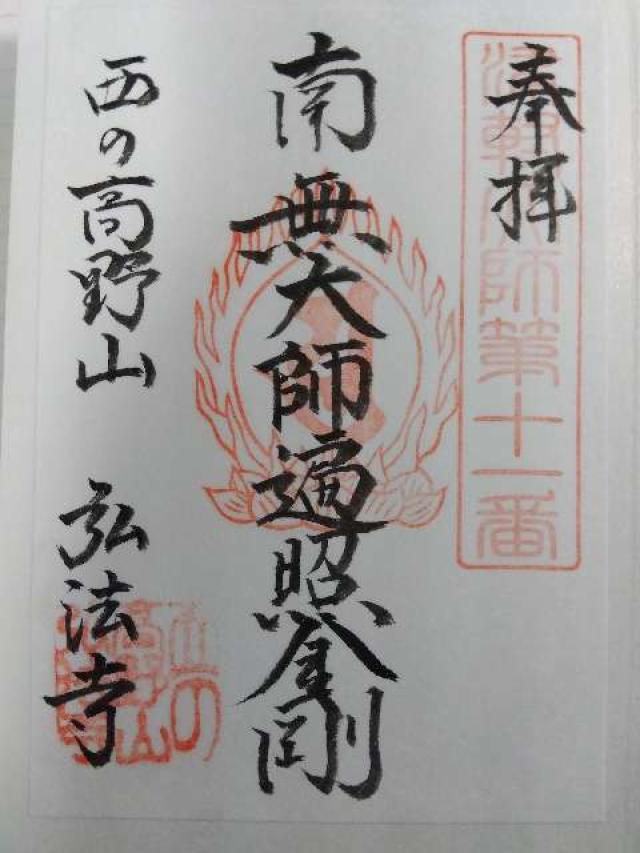 奉拝
津軽大師第十一番
南無大師遍照金剛
西の高野山 弘法寺
西の高野山